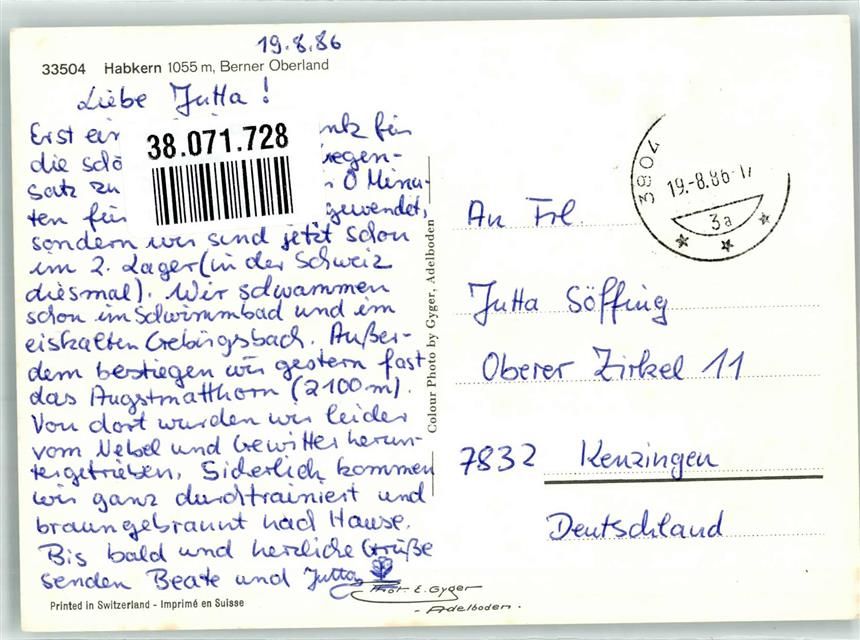 19.8.86
33504 Habkern 1055 m, Berner Oberland
Liebe Jutta!
Erst ein
die schö
satz zu
ten für gewendet,
38.071.728
sondern wir sind jetzt schon
im 2. Lager (in der Schweiz
diesmal). Wir schwammen
schon im Schwimmbad und im
eiskalten Gebirgsbach. Außer-
dem bestiegen wir gestern fast
das Augstmatthorn (2100m).
Von dort wurden wir leider
vom Nebel und Gewitter herun-
tergetrieben. Sicherlich kommen
wir ganz durchtrainiert und
braungebrannt nach Hause.
Bis bald und herzliche Grüße
senden Beate und Jutta
Printed in Switzerland - Imprimé en Suisse
Colour Photo by Gyger, Adelboden
Phot. E. Gyger
- Adelboden.
19.-8.86-17
3a
An Frl.
Jutta Söffing
Oberer Zirkel 11
7832 Kenzingen
Deutschland